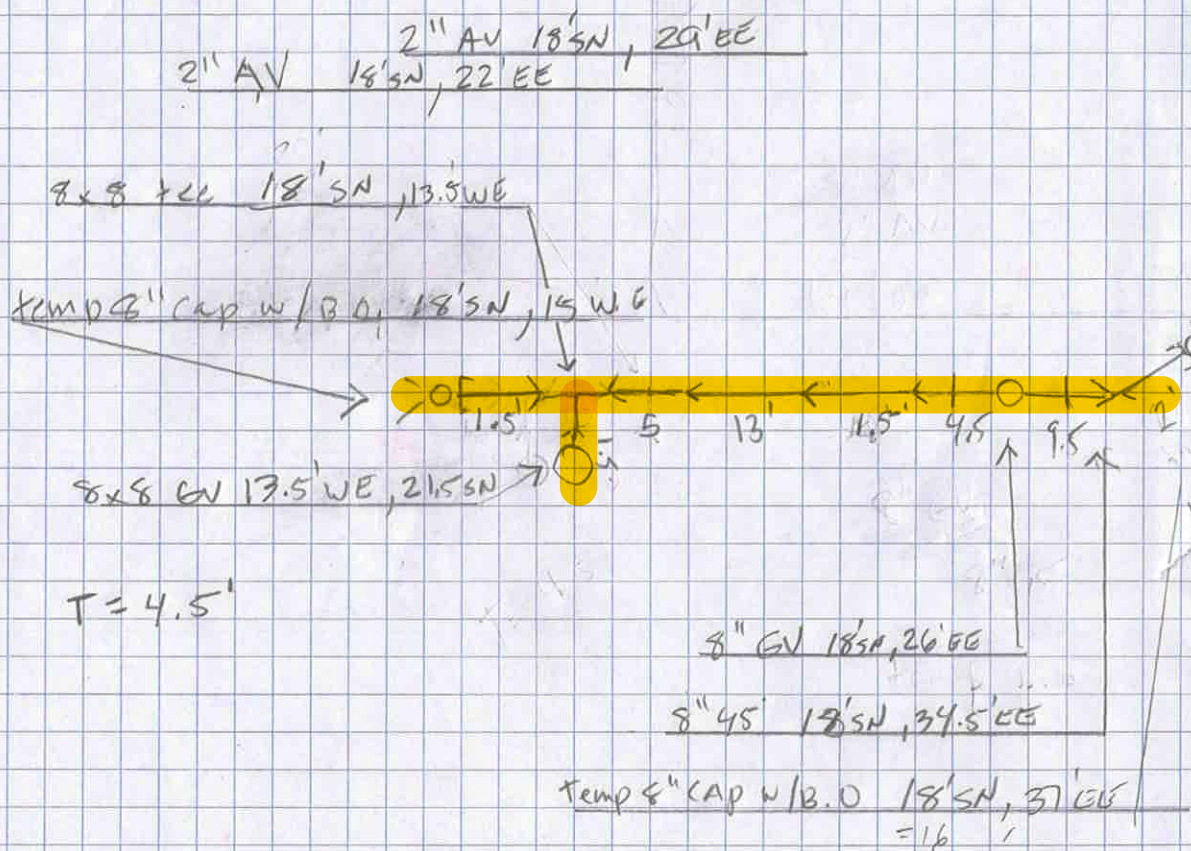 2" AV 18'SN, 29'EE
2" AV 18'SN, 22'EE
8x8 tee 18'SN, 13.5'WE
temp 8" cap w/B.O, 18'SN, 15 W.E
1.5' 5 13' 11.5' 4.5 9.5 2'
8x8 GV 13.5'WE, 21.5 SN
T = 4.5'
8" GV 18'SN, 26'EE
8" 45 18'SN, 34.5'EE
temp 8" CAP w/B.O 18'SN, 37'EE
=16